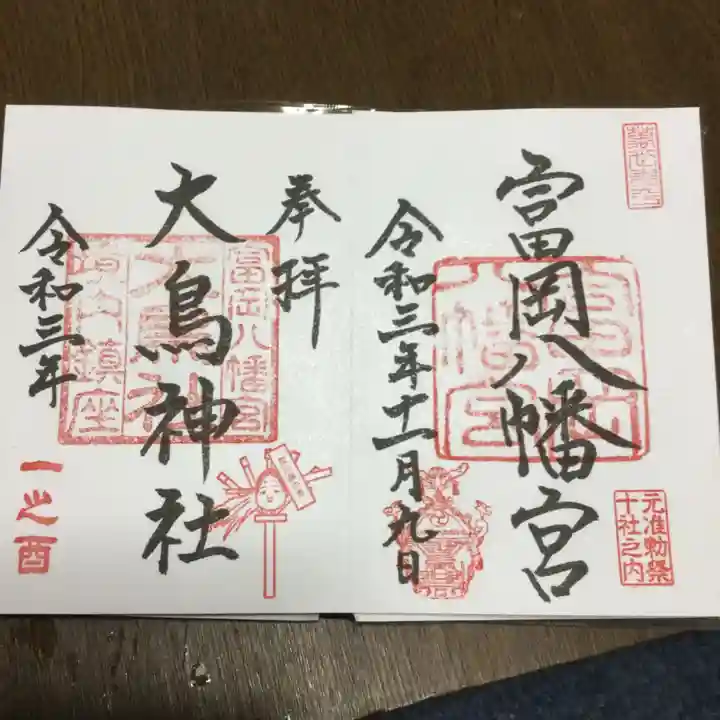 冨岡八幡宮
令和三年十一月九日
元准勅祭
十社之内
奉拝
大鳥神社
冨岡八幡宮
大鳥神社
境内鎮座
令和三年
一之酉